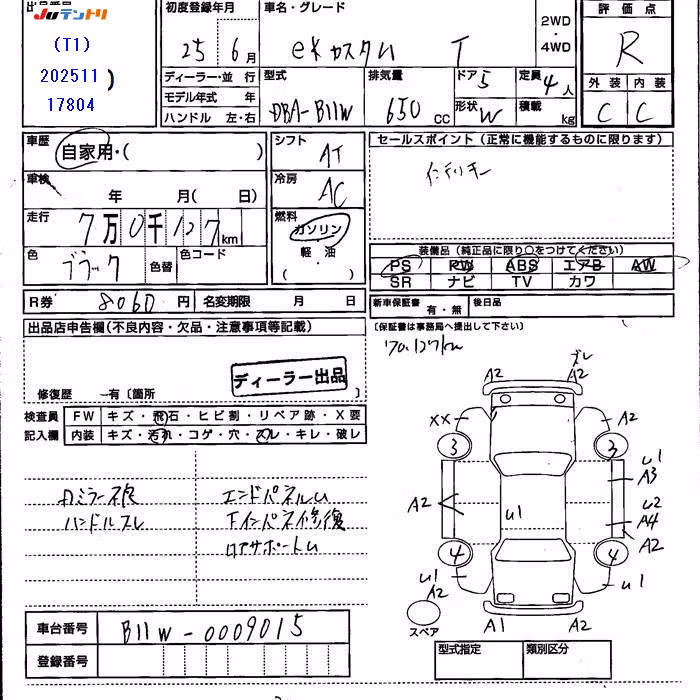 出品番号
Juテントリ
(T1)
202511
17804
初度登録年月
25年 6月
車名・グレード
eKカスタム T
2WD・4WD
評価点
R
外装 内装
C C
ディーラー・並行
モデル年式 年
ハンドル 左・右
型式
DBA-B11W
排気量
650 CC
ドア 5
形状 W
定員 4人
積載 kg
車歴 自家用・( )
車検 年 月( 日)
走行 7万0千127km
色 ブラック 色替 色コード
シフト AT
冷房 AC
燃料 ガソリン
軽油
( ・ )
セールスポイント (正常に機能するものに限ります)
インテリキー
装備品 (純正品に限り○をつけてください)
PS PW ABS エアB AW
SR ナビ TV カワ
R券 8060円 名変期限 月 日
新車保証書 有・無 後日品
(保証書は事務局へ提出して下さい)
出品店申告欄(不良内容・欠品・注意事項等記載)
70,127km
ディーラー出品
修復歴 ー有〔箇所 〕
検査員記入欄
FW キズ・飛石・ヒビ割・リペア跡・X要
内装 キズ・汚れ・コゲ・穴・スレ・キレ・破レ
エンドパネルU
ハンドルスレ
下インパネ修復
ロアサポートU
ズレ
A2 A2
XX A2
3 3
U1
A3
A2
U1
U2
A4
A2
4 4
U1
A2
U1
スペア
A1 A2
車台番号 B11W-0009015
登録番号
型式指定 類別区分